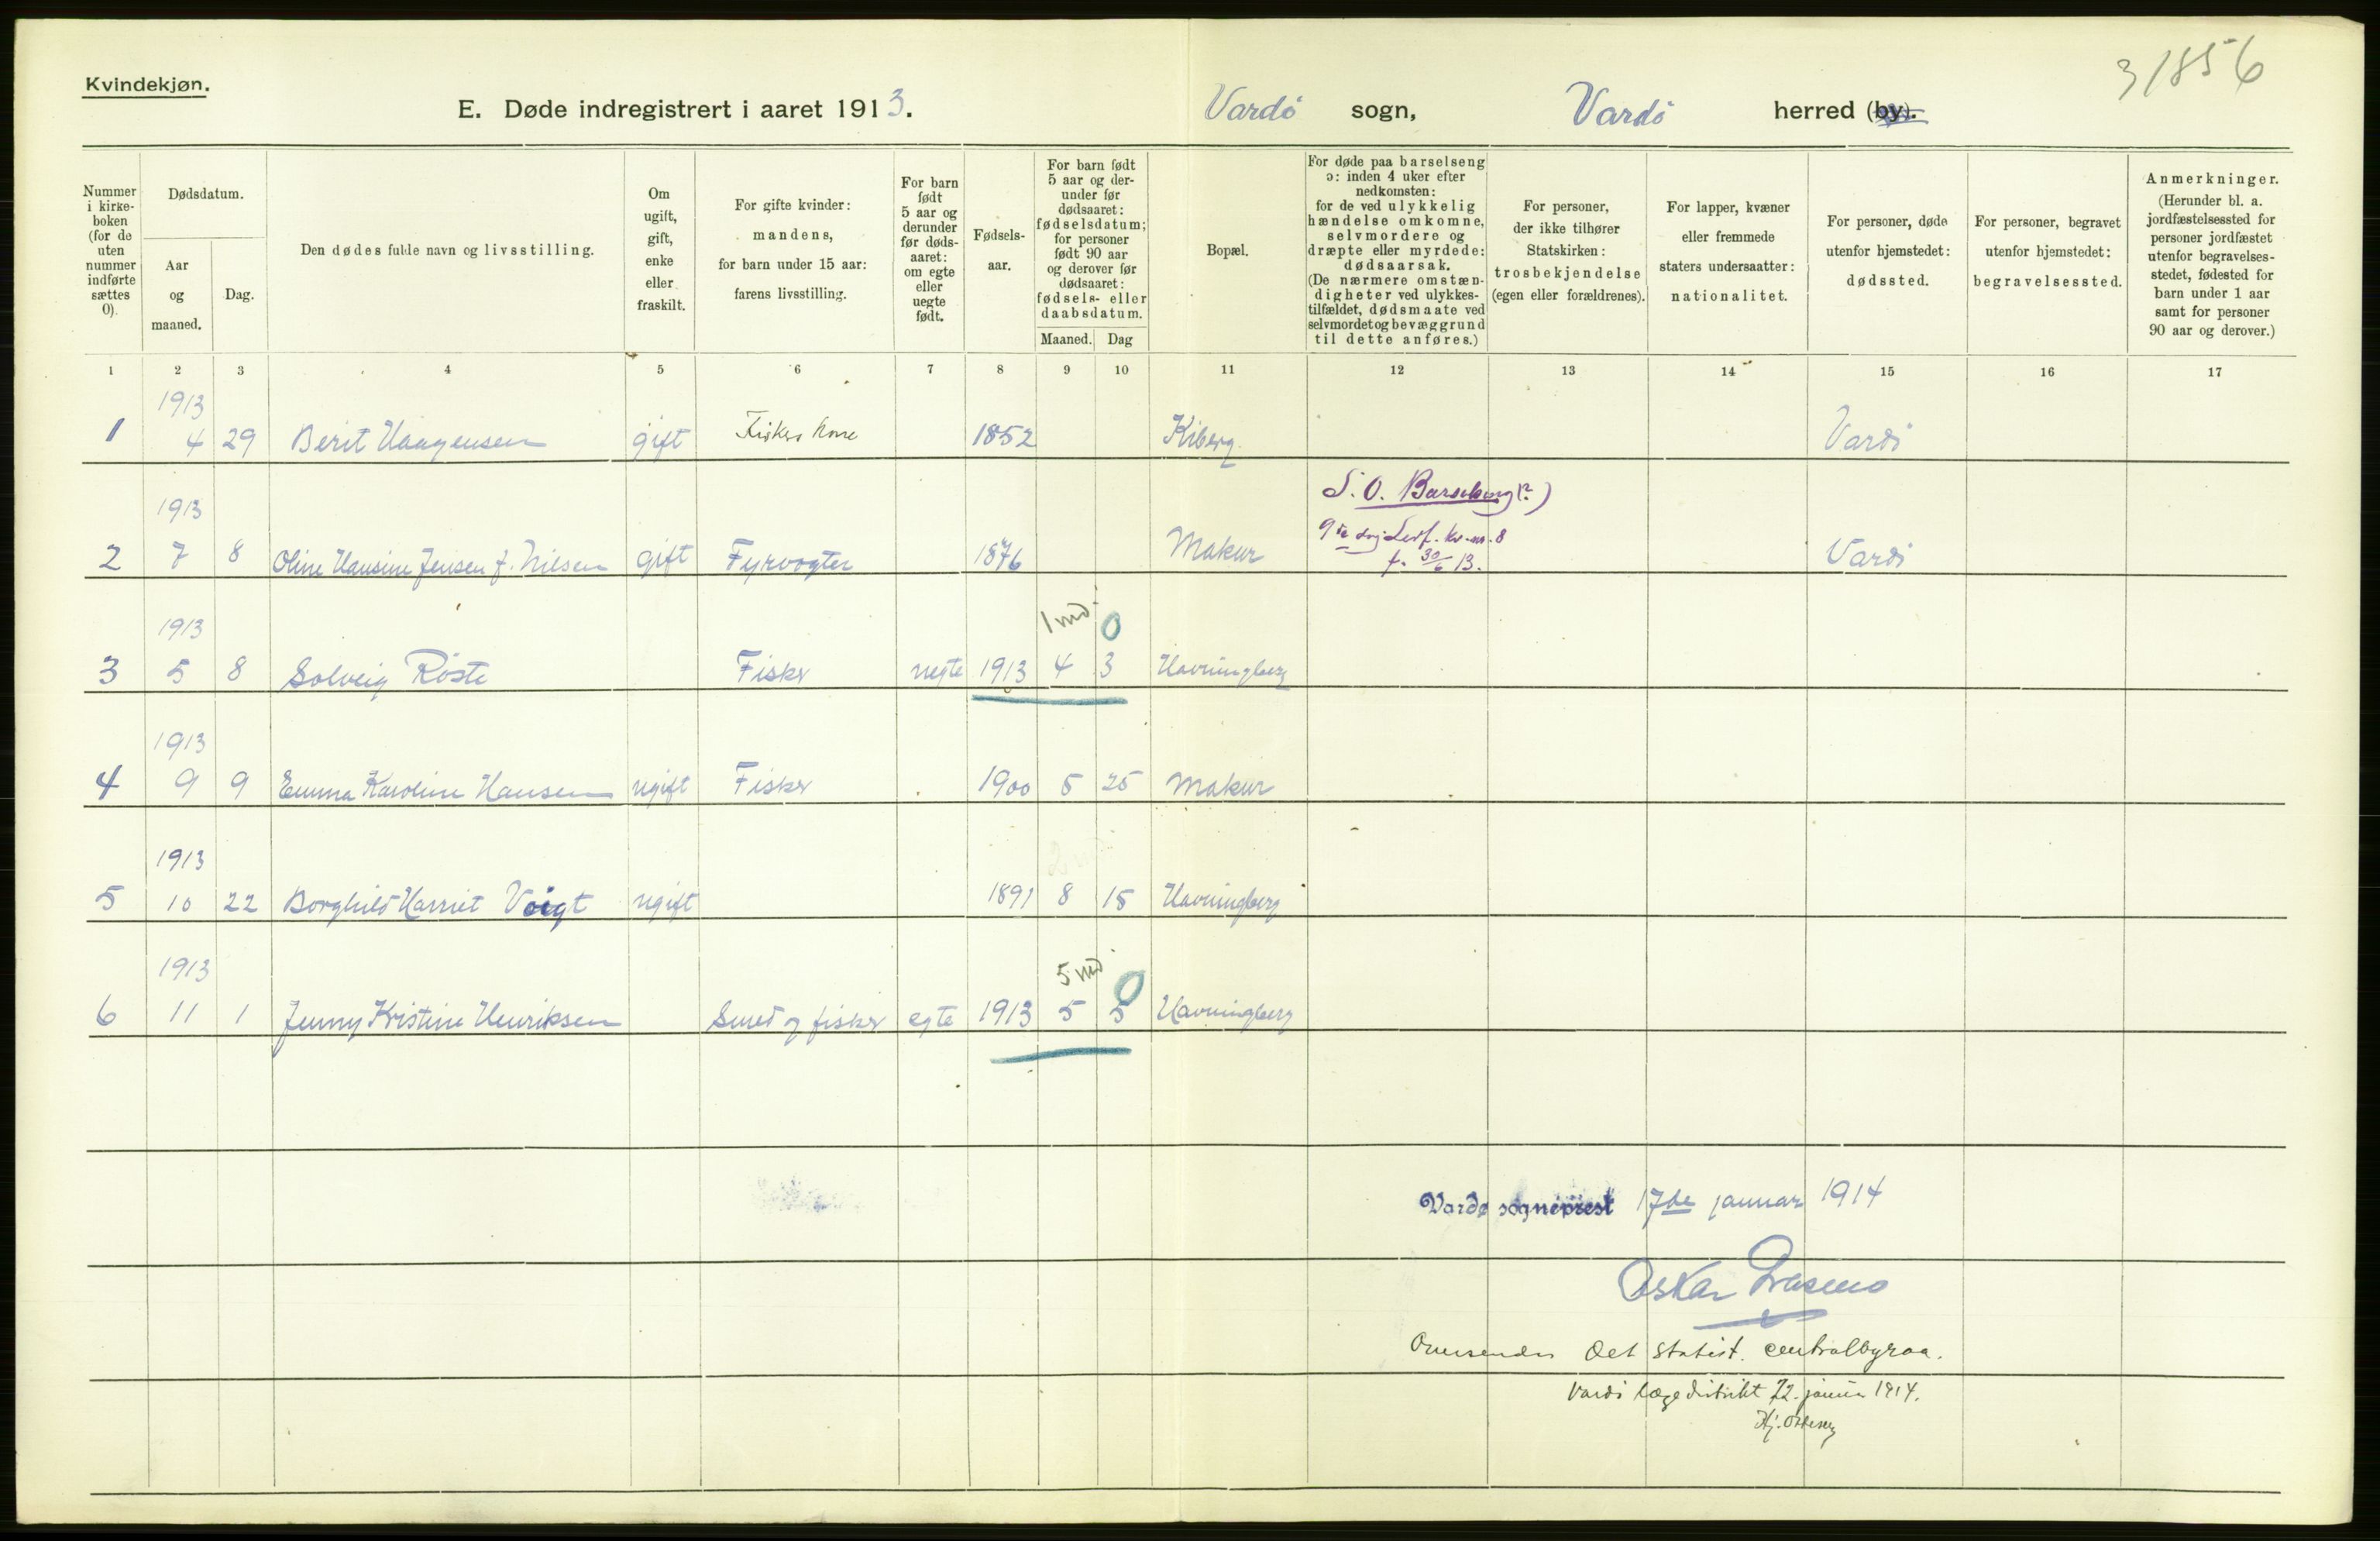 31856
Kvindekjøn.
E. Døde indregistrert i aaret 1913.
Vardö sogn, Vardö herred (by).
Nummer i kirke-boken (for de uten nummer indførte sættes 0).
Dødsdatum.
Aar og maaned.
Dag.
Den dødes fulde navn og livsstilling.
Om ugift, gift, enke eller fraskilt.
For gifte kvinder: mandens, for barn under 15 aar: farens livsstilling.
For barn født 5 aar og derunder før døds-aaret: om egte eller uegte født.
Fødsels-aar.
For barn født 5 aar og der-under før dødsaaret: fødselsdatum; for personer født 90 aar og derover før dødsaaret: fødsels- eller daabsdatum.
Maaned. Dag
Bopæl.
For døde paa barselseng ɔ: inden 4 uker efter nedkomsten: for de ved ulykkelig hændelse omkomne, selvmordere og dræpte eller myrdede: dødsaarsak. (De nærmere omstæn-digheter ved ulykkes-tilfældet, dødsmaate ved selvmordet og bevæggrund til dette anføres.)
For personer, der ikke tilhører Statskirken: trosbekjendelse (egen eller forældrenes).
For lapper, kvæner eller fremmede staters undersaatter: nationalitet.
For personer, døde utenfor hjemstedet: dødssted.
For personer, begravet utenfor hjemstedet: begravelsessted.
Anmerkninger. (Herunder bl. a. jordfæstelsessted for personer jordfæstet utenfor begravelses-stedet, fødested for barn under 1 aar samt for personer 90 aar og derover.)
1 2 3 4 5 6 7 8 9 10 11 12 13 14 15 16 17
1913
1 4 29 Berit Haagensen gift Fiskers kone 1852 Kiberg Vardö
S. O. Barselseng (?)
1913
9de dag Levf. Kv. nr. 8
2 7 8 Oline Hansine Jensen f. Nilsen gift Fyrvogter 1876 Makur f. 30/6 13. Vardö
1913 1 md. 0
3 5 8 Solveig Röste Fisker uegte 1913 4 3 Havningberg
1913
4 9 9 Emma Karoline Hansen ugift Fisker 1900 5 25 Makur
1913 2 md.
5 10 22 Borghild Harriet Voigt ugift 1891 8 15 Havningberg
1913 5 md. 0
6 11 1 Jenny Kristine Henriksen Smed og fisker egte 1913 5 5 Havningberg
Vardø sogneprest 17de januar 1914
Oskar
Oversendes Det statist. centralbyraa.
Vardö lægedistrikt 22. januar 1914.